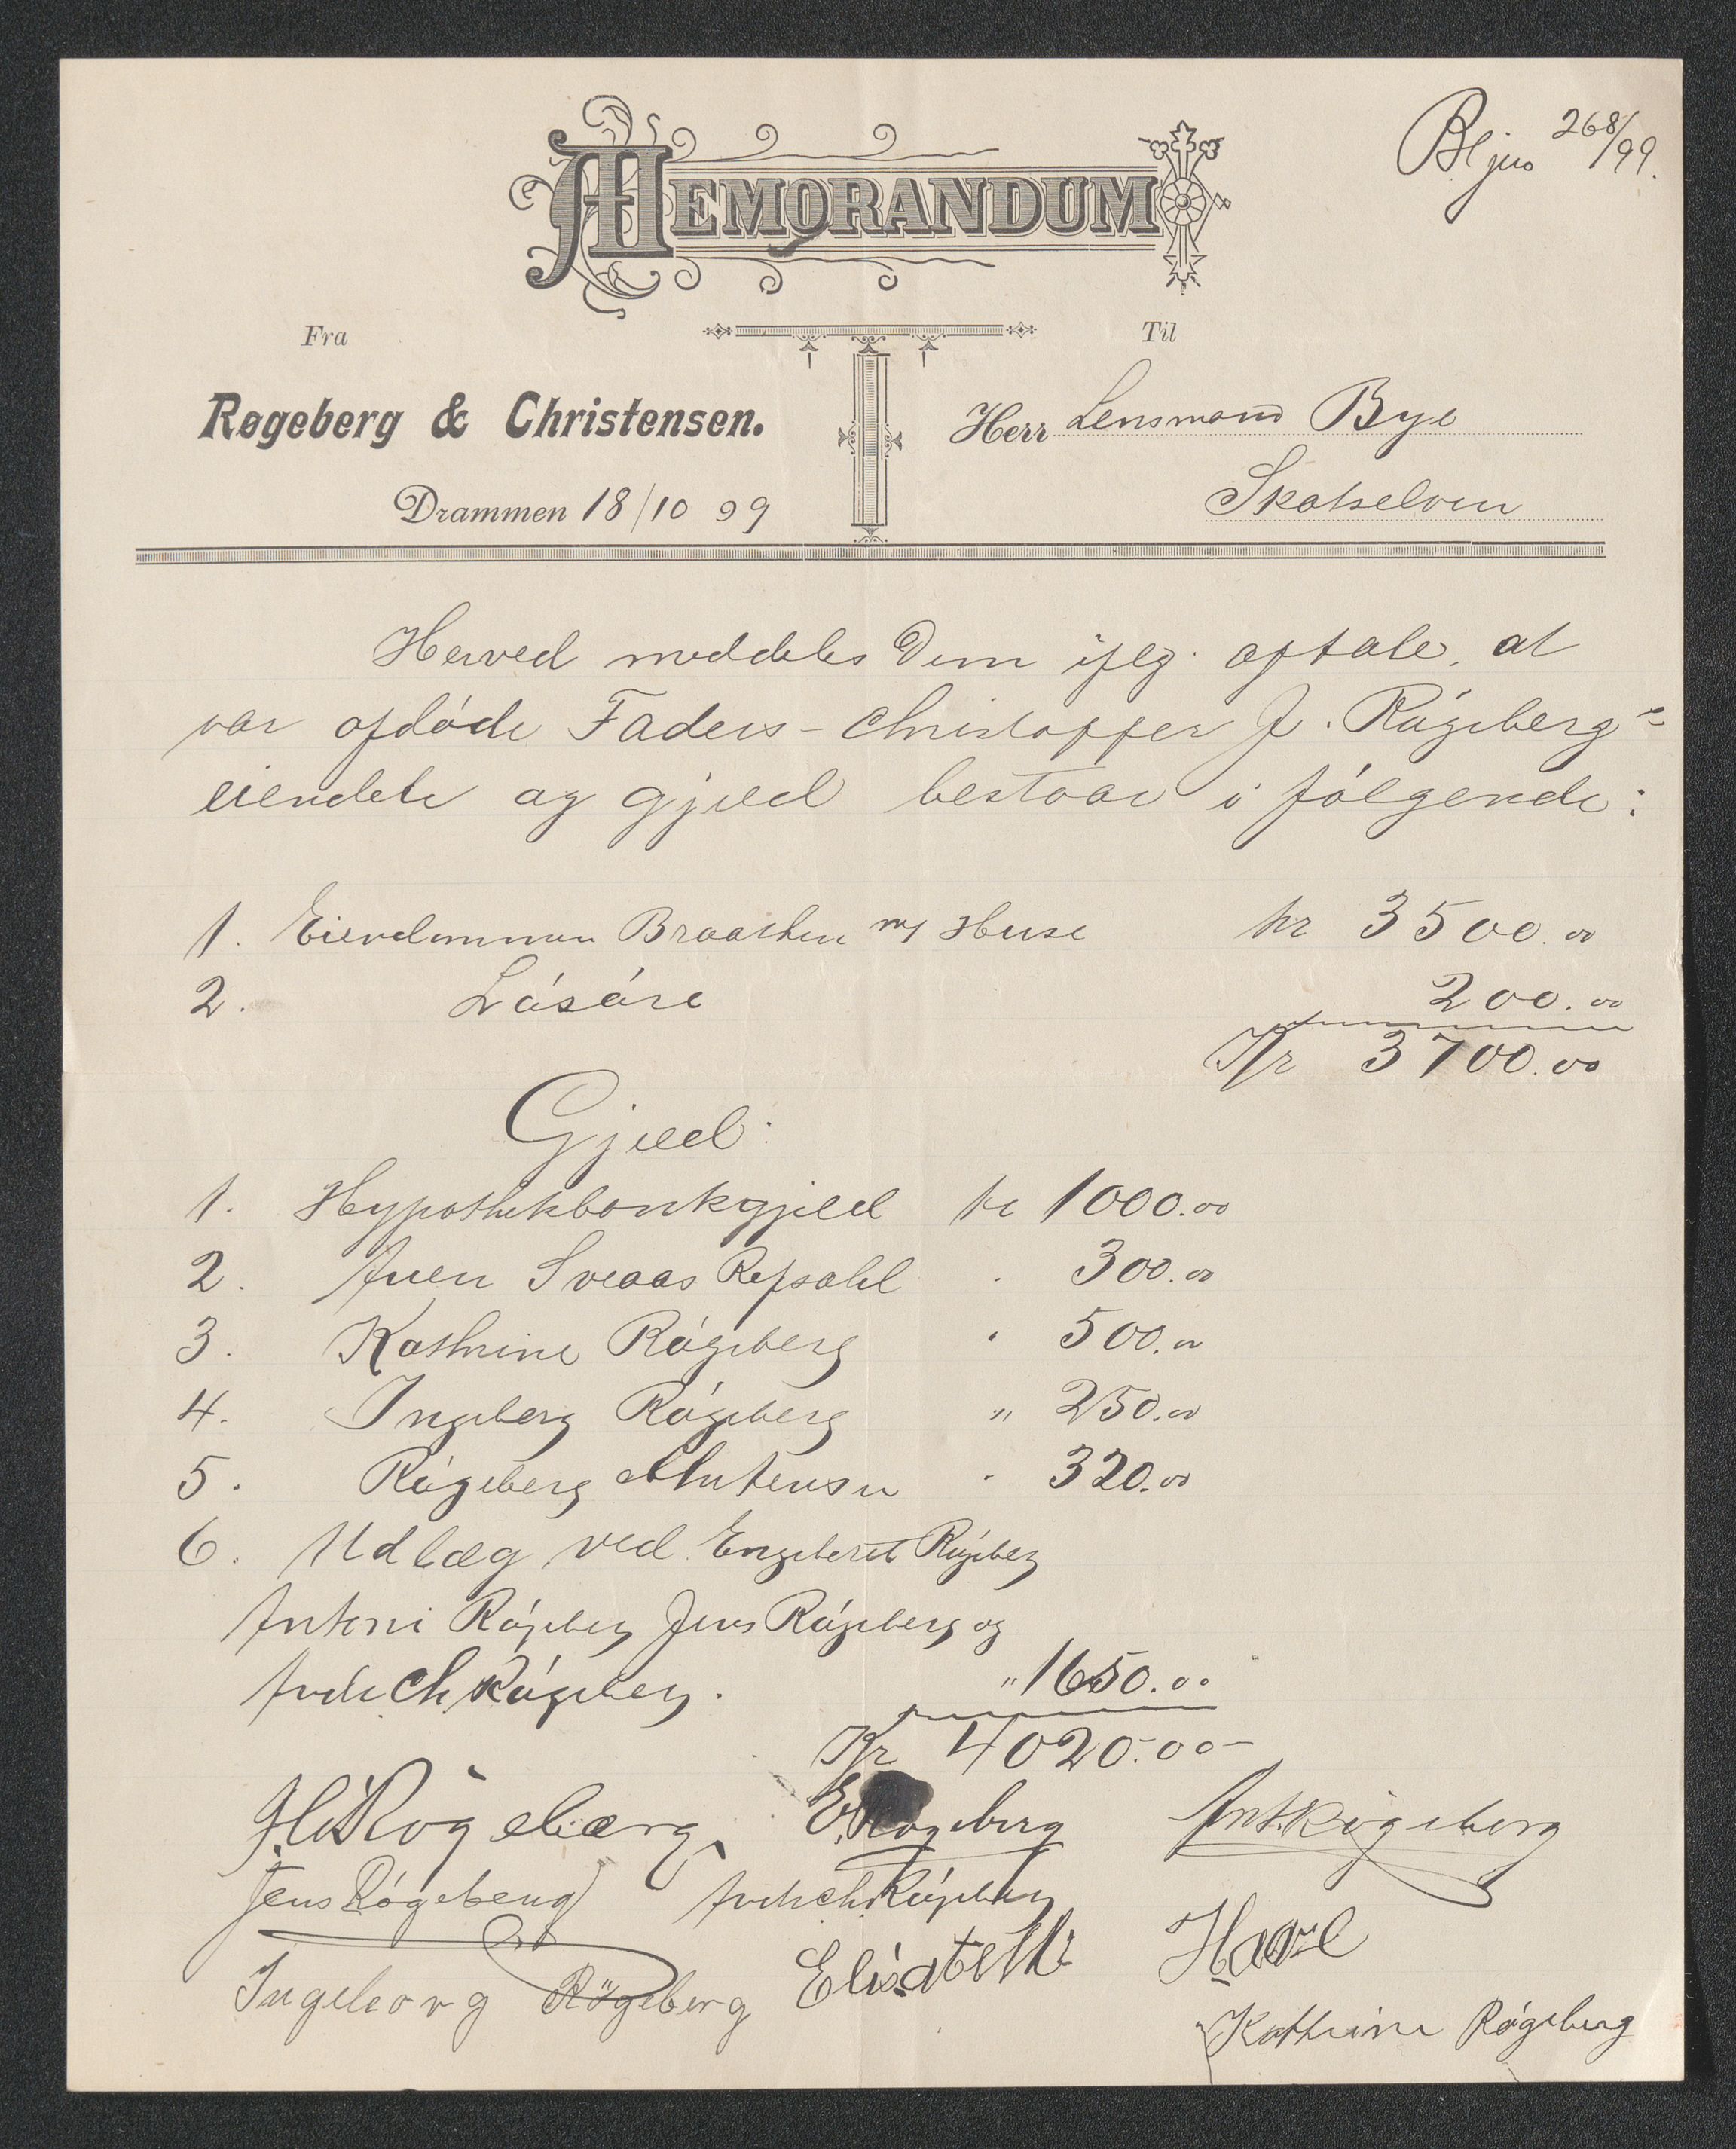 Bl jno 268/99.
MEMORANDUM
Fra
Til
Røgeberg & Christensen.
Herr Lensmand Bye
Drammen 18/10 99
Skotselven
Herved meddeles Dem ifølg. aftale, at
vor afdøde Faders - Christoffer J. Røgeberg's
eiendele og gjæld bestaar i følgende:
1. Eiendommen Braathen m/ Huse kr 3500.00
2. Løsøre 200.00
Kr 3700.00
Gjæld:
1. Hypothekbankgjæld kr 1000.00
2. Sveaas Refsahl 300.00
3. Kathrine Røgeberg " 500.00
4. Ingeborg Røgeberg " 250.00
5. Røgeberg & Christensen " 320.00
6. Udlæg ved Engebret Røgeberg
Antoni Røgeberg Jens Røgeberg og
Ch Røgeberg. " 1650.00
Kr 4020.00
Røgeberg E Røgeberg Ant. Røgeberg
Jens Røgeberg Ch. Røgeberg
Elisabeth
Ingeborg Røgeberg
Kathrine Røgeberg